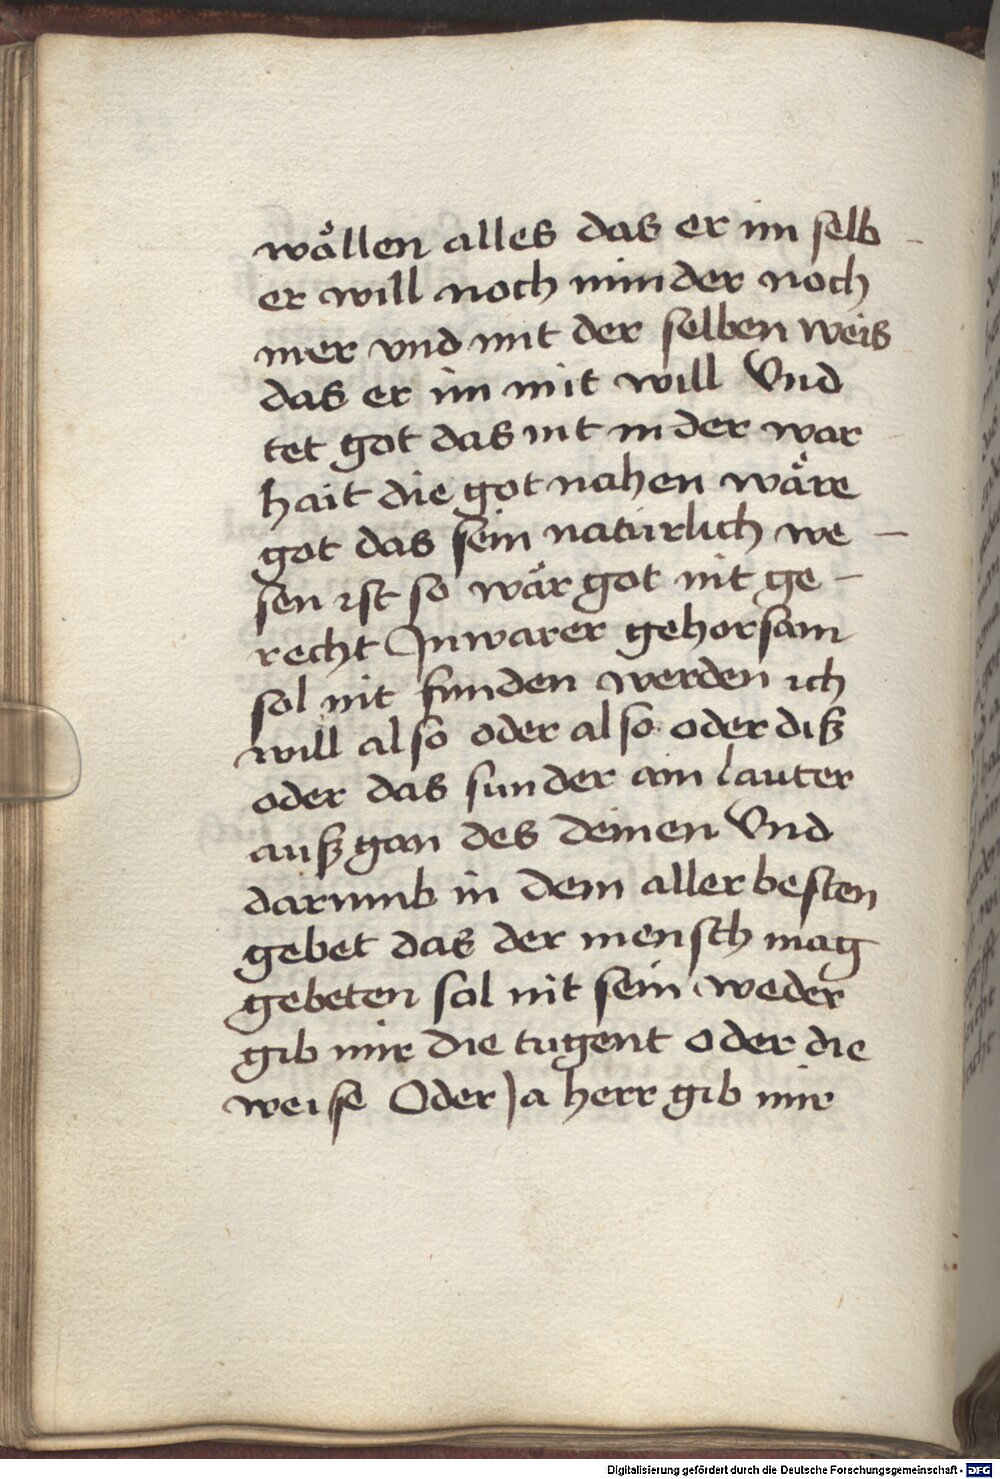 wållen alles das er im selb
er will noch minder noch
mer vnd mit der selben weis
das er im mit will Vnd
tet got das nit in der war
hait die got nahen wåre
got das sein naturlich we –
sen ist so wår got nit ge –
recht In warer gehorsam
sol nit funden werden ich
will also oder also oder diß
oder das sunder ain lauter
außgan des deinen Vnd
darumb in dem aller besten
gebet das der mensch mag
gebeten sol nit sein weder
gib mir die tugent oder die
weise Oder ja herr gib mir
Digitalisierung gefördert durch die Deutsche Forschungsgemeinschaft - DFG